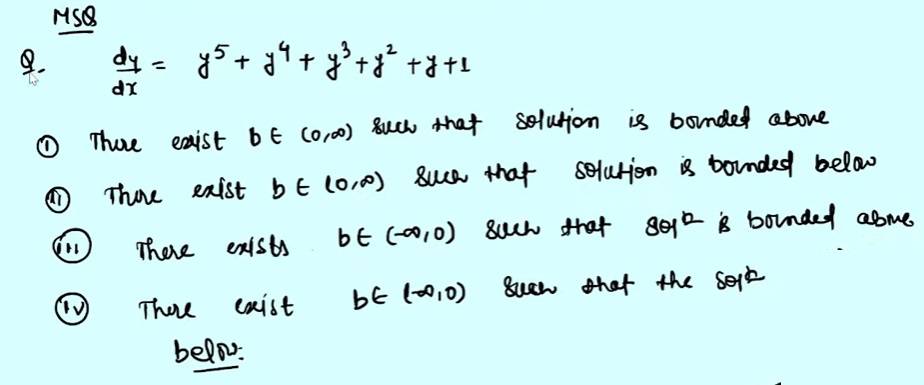 MSQ
Q. dy/dx = y⁵ + y⁴ + y³ + y² + y + 1
(i) There exist b ∈ (0,∞) such that solution is bounded above
(ii) There exist b ∈ (0,∞) such that solution is bounded below
(iii) There exists b ∈ (-∞,0) such that solⁿ is bounded above
(iv) There exist b ∈ (-∞,0) such that the solⁿ
below.